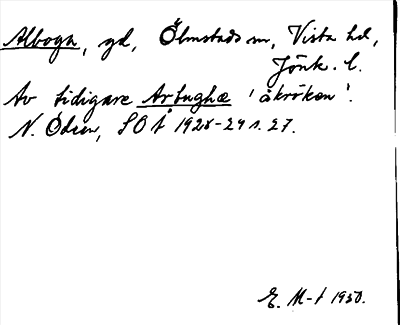 Alboga, gd, Ölmstads sn, Vista hd,
Jönk. l.
Av tidigare Arbughæ 'åkröken'.
N. Ödeen, SOÅ 1928-29 s. 27.
E. M-t 1950.